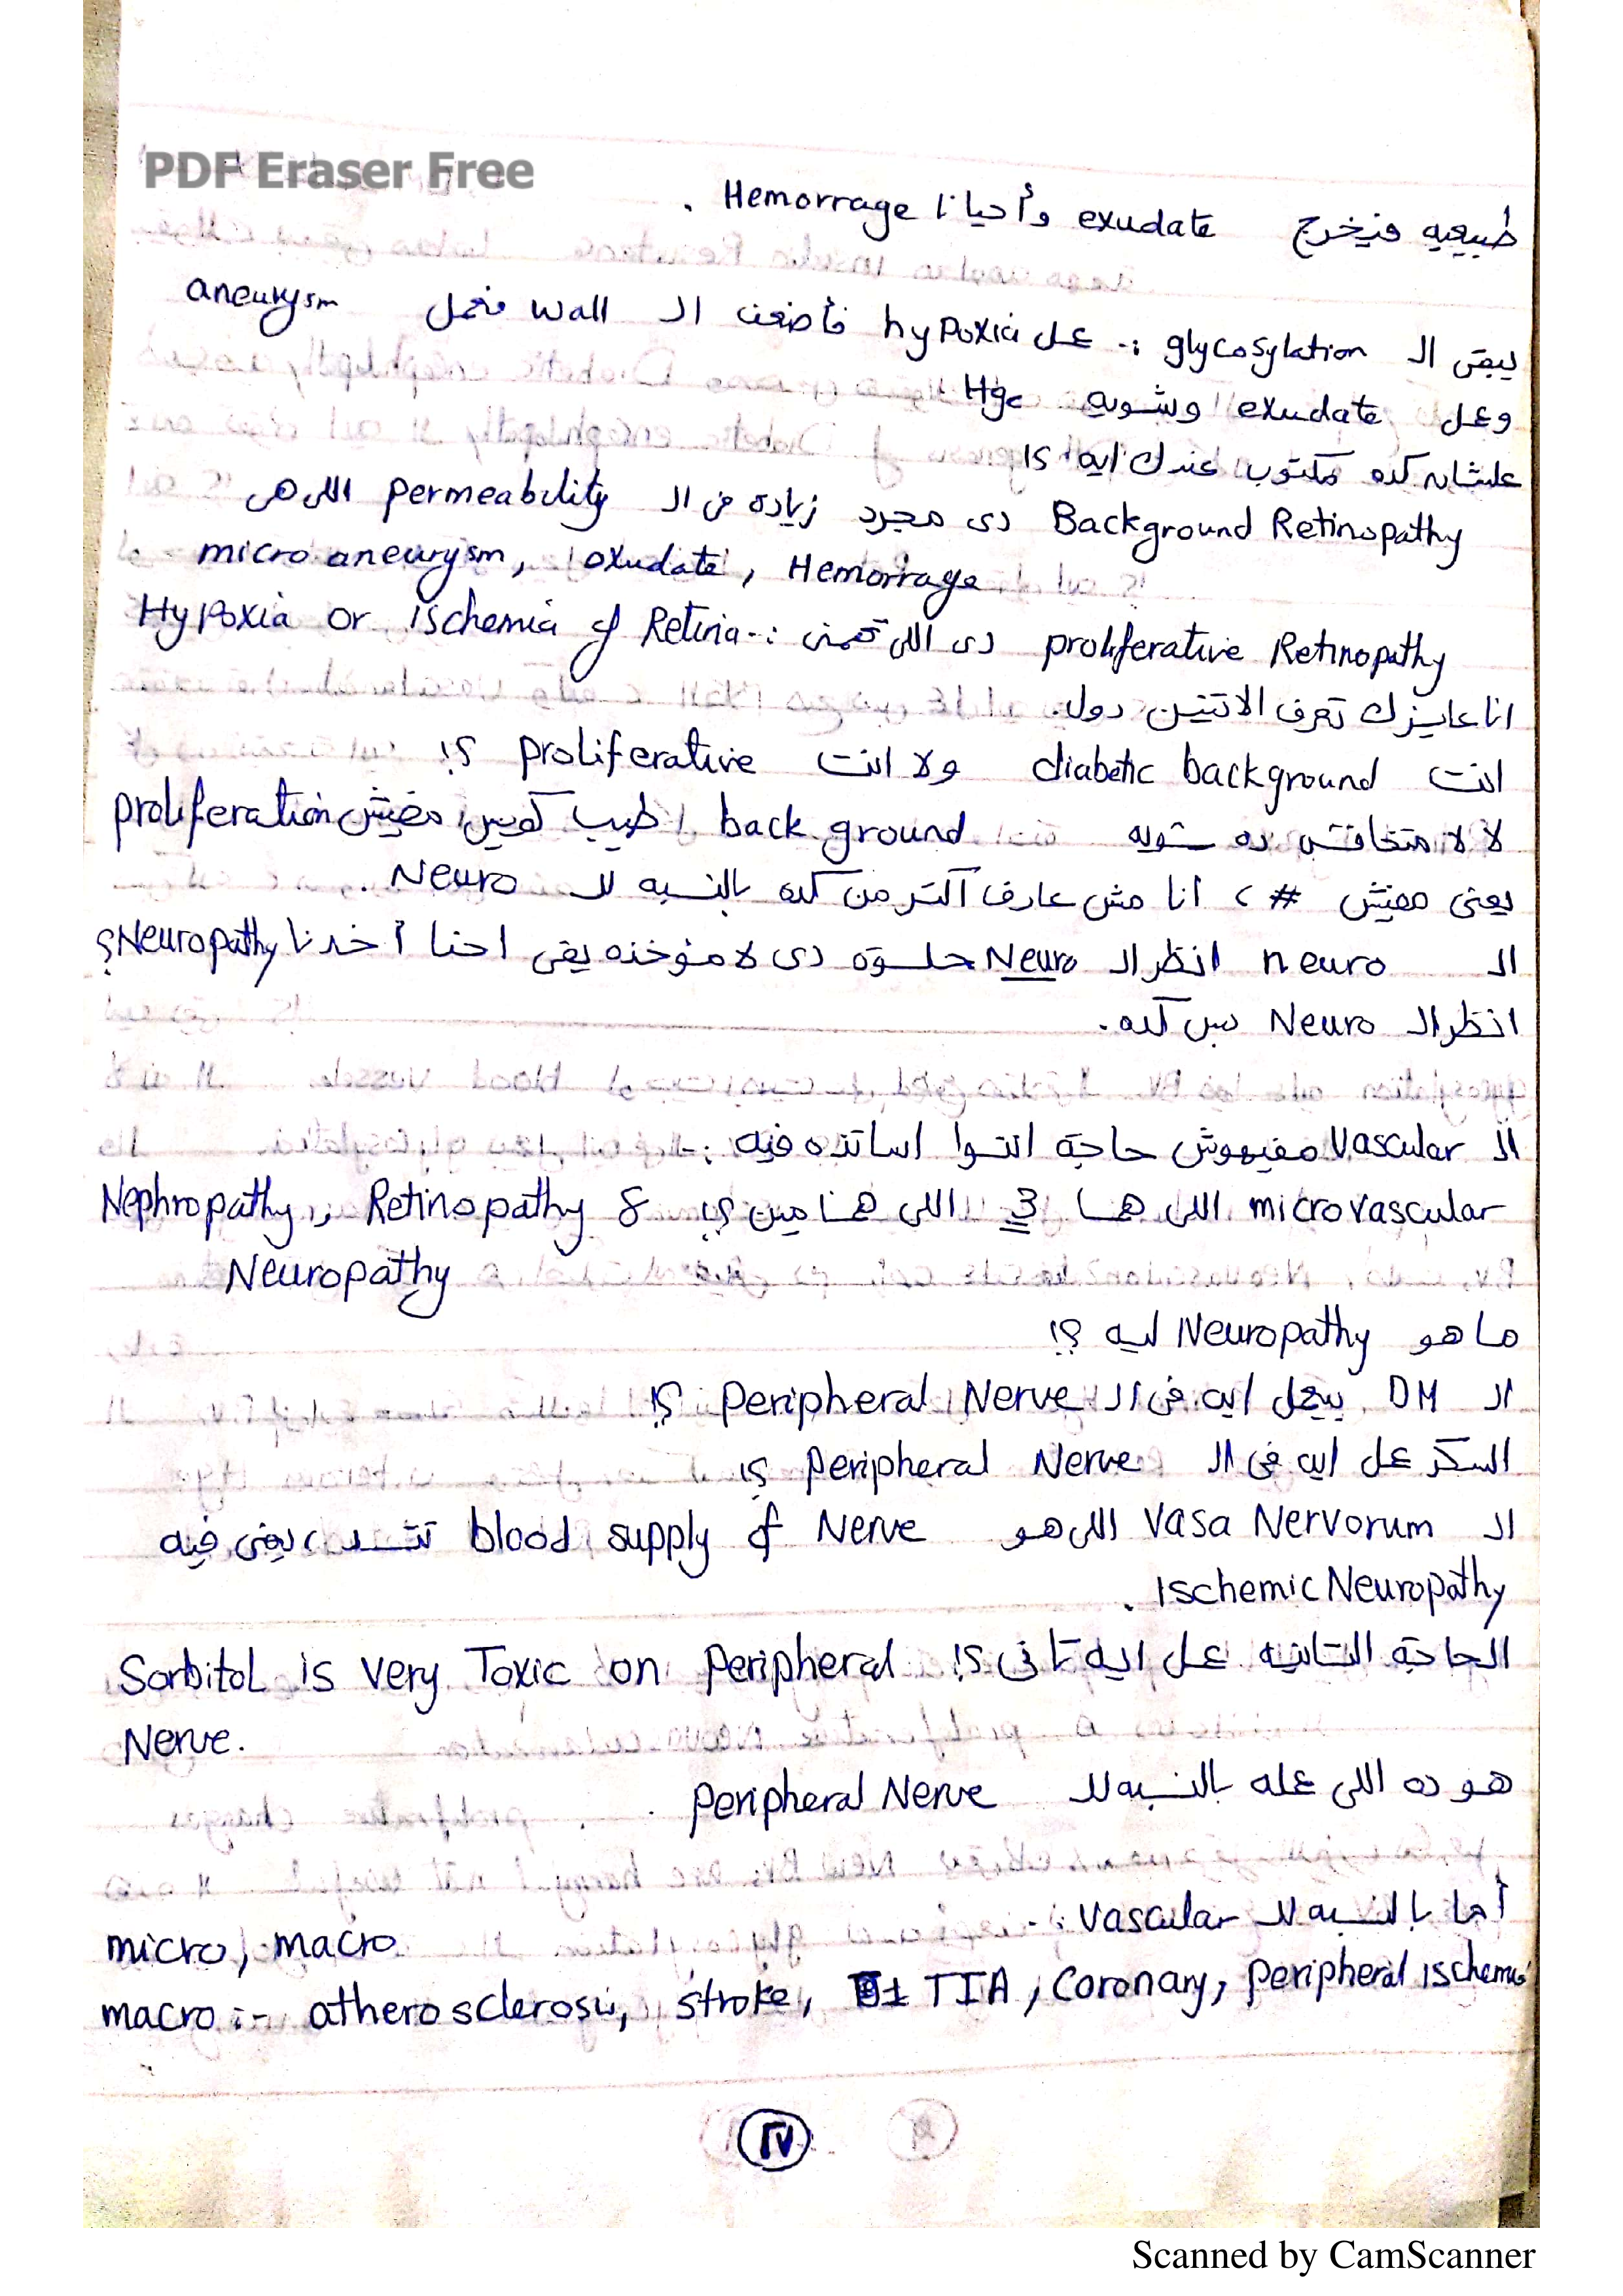 PDF Eraser Free
طبيعيه فيخرج exudate وأحيانا Hemorrage .
يبقى ال glycosylation :- عمل hypoxia فأضعف ال wall فعمل aneurysm
وعمل exudate وشويه Hge
علشان كده مكتوب عندك ايه ؟!
Background Retinopathy دى مجرد زياده فى ال permeability اللى هى
micro aneurysm, exudate, Hemorrage
proliferative Retinopathy دى اللى تعنى :- Hypoxia or ischemia of Retina
انا عايزك تعرف الاتنين دول.
انت diabetic background ولا انت proliferative ؟!
لا لا متخافش ده شويه back ground طيب كويس مفيش proliferation
يعنى مفيش # ، أنا مش عارف أكتر من كده بالنسبه لل Neuro .
ال neuro انظر ال Neuro حلوة دى لا مؤخذه يقى احنا أخدنا Neuropathy؟
انظر ال Neuro بس كده.
ال vascular مفيهوش حاجة انتوا اساتذه فيه :-
microvascular اللى هما 3 اللى هما مين ؟! Nephropathy, Retinopathy &
Neuropathy
ما هو Neuropathy ليه ؟!
ال DM بيعمل ايه فى ال Peripheral Nerve ؟!
السكر عمل ايه فى ال Peripheral Nerve ؟!
ال Vasa Nervorum اللى هو blood supply of Nerve تتسد ، يعنى فيه
Ischemic Neuropathy .
الحاجة التانيه عمل ايه تانى ؟! Sorbitol is very Toxic on Peripheral
Nerve.
هو ده اللى عمله بالنسبه لل Peripheral Nerve .
أما بالنسبه لل vascular :-
micro, macro
macro :- atherosclerosis, stroke, TIA, Coronary, peripheral ischemia
٢٧
Scanned by CamScanner